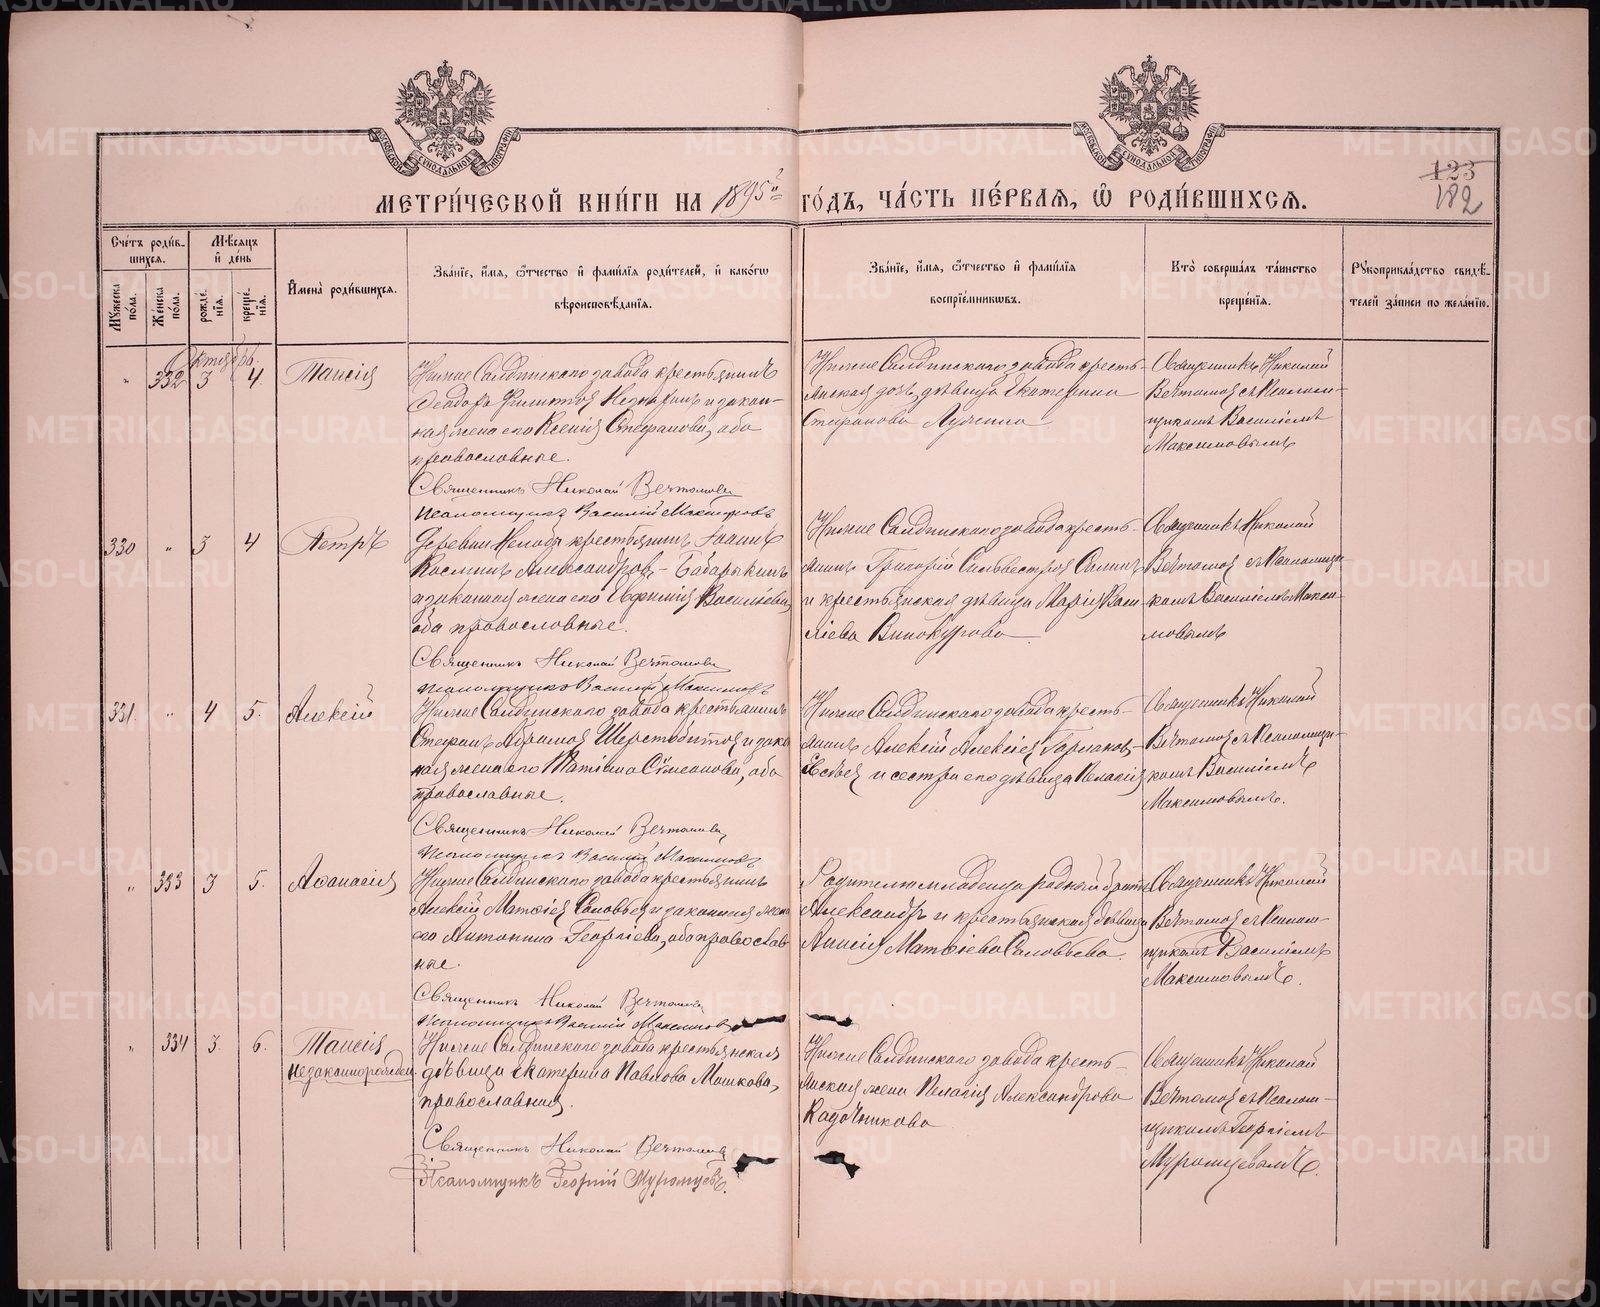 МЕТРИ́ЧЕСКОЙ КНИ́ГИ НА 1895й ГО́ДЪ, ЧА́СТЬ ПЕ́РВАЯ, Ѡ РОДИ́ВШИХСЯ.
123
182
Сче́тъ роди́в-
шихся.
Мѣ́сяцъ
и́ де́нь
Му́жеска
по́ла.
Же́нска
по́ла.
рожде́-
нїя.
креще́-
нїя.
И́мена̀ роди́вшихся.
Зва́нїе, и́мя, ѻ́тчество и́ фами́лїя роди́телей, и́ како́гѡ
вѣроисповѣ́данїя.
Зва́нїе, и́мя, ѻ́тчество и́ фами́лїя
воспрїе́мниковъ.
Кто̀ соверша́лъ та́инство
креще́нїя.
Рукоприкла́дство свидѣ́-
телей за́писи по жела́нїю.
Октябрь
" 332 3 4 Таисія
Нижне Салдинскаго завода крестьянинъ
Ѳеодоръ Филиптов и закон-
ная жена его Ксенія Стефанова, оба
православные.
Священникъ Николай Вечтомовъ
Псаломщикъ Василій Максимовъ
Нижне Салдинскаго завода кресть-
янская дочь, дѣвица Екатерина
Стефанова
Священникъ Николай
Вечтомовъ съ Псалом-
щикомъ Василіемъ
Максимовымъ
330 " 3 4 Петръ
Деревни Нелоба крестьянинъ Іоаннъ
Косминъ Александровъ-Бабарыкинъ
и законная жена его Евфимія Васильева,
оба православные.
Священникъ Николай Вечтомовъ
Псаломщикъ Василій Максимовъ
Нижне Салдинскаго завода кресть-
янинъ Григорій Сильвестровъ
и крестьянская дѣвица Марія Васи-
ліева Винокурова
Священникъ Николай
Вечтомовъ съ Псаломщи-
комъ Василіемъ Макси-
мовымъ
331. " 4 5. Алексій
Нижне Салдинскаго завода крестьянинъ
Стефанъ Абрамовъ Шерстобитовъ и закон-
ная жена его Татіана Сѵмеонова, оба
православные.
Священникъ Николай Вечтомовъ,
Псаломщикъ Василій Максимовъ
Нижне Салдинскаго завода кресть-
янинъ Алексій Алексіевъ
и сестра его дѣвица Пелагія
Священникъ Николай
Вечтомовъ съ Псаломщи-
комъ Василіемъ
Максимовымъ.
" 333 3 5. Аѳанасія
Нижне Салдинскаго завода крестьянинъ
Алексій Матѳіевъ Соловьевъ и законная жена
его Антонина Георгіева, оба православ-
ные.
Священникъ Николай Вечтомовъ
Псаломщикъ Василій Максимовъ
Родителю младенца родной братъ
Александръ и крестьянская дѣвица
Анисія Матѳіева Соловьева.
Священникъ Николай
Вечтомовъ съ Псалом-
щикомъ Василіемъ
Максимовымъ.
" 334 3. 6. Таисія
незаконнорожден.
Нижне Салдинскаго завода крестьянская
дѣвица Екатерина Павлова Машкова,
православная.
Священникъ Николай Вечтомовъ
Псаломщикъ Георгій Муромцевъ.
Нижне Салдинскаго завода кресть-
янская жена Пелагія Александрова
Кадочникова
Священникъ Николай
Вечтомовъ съ Псалом-
щикомъ Георгіемъ
Муромцевымъ.
METRIKI.GASO-URAL.RU